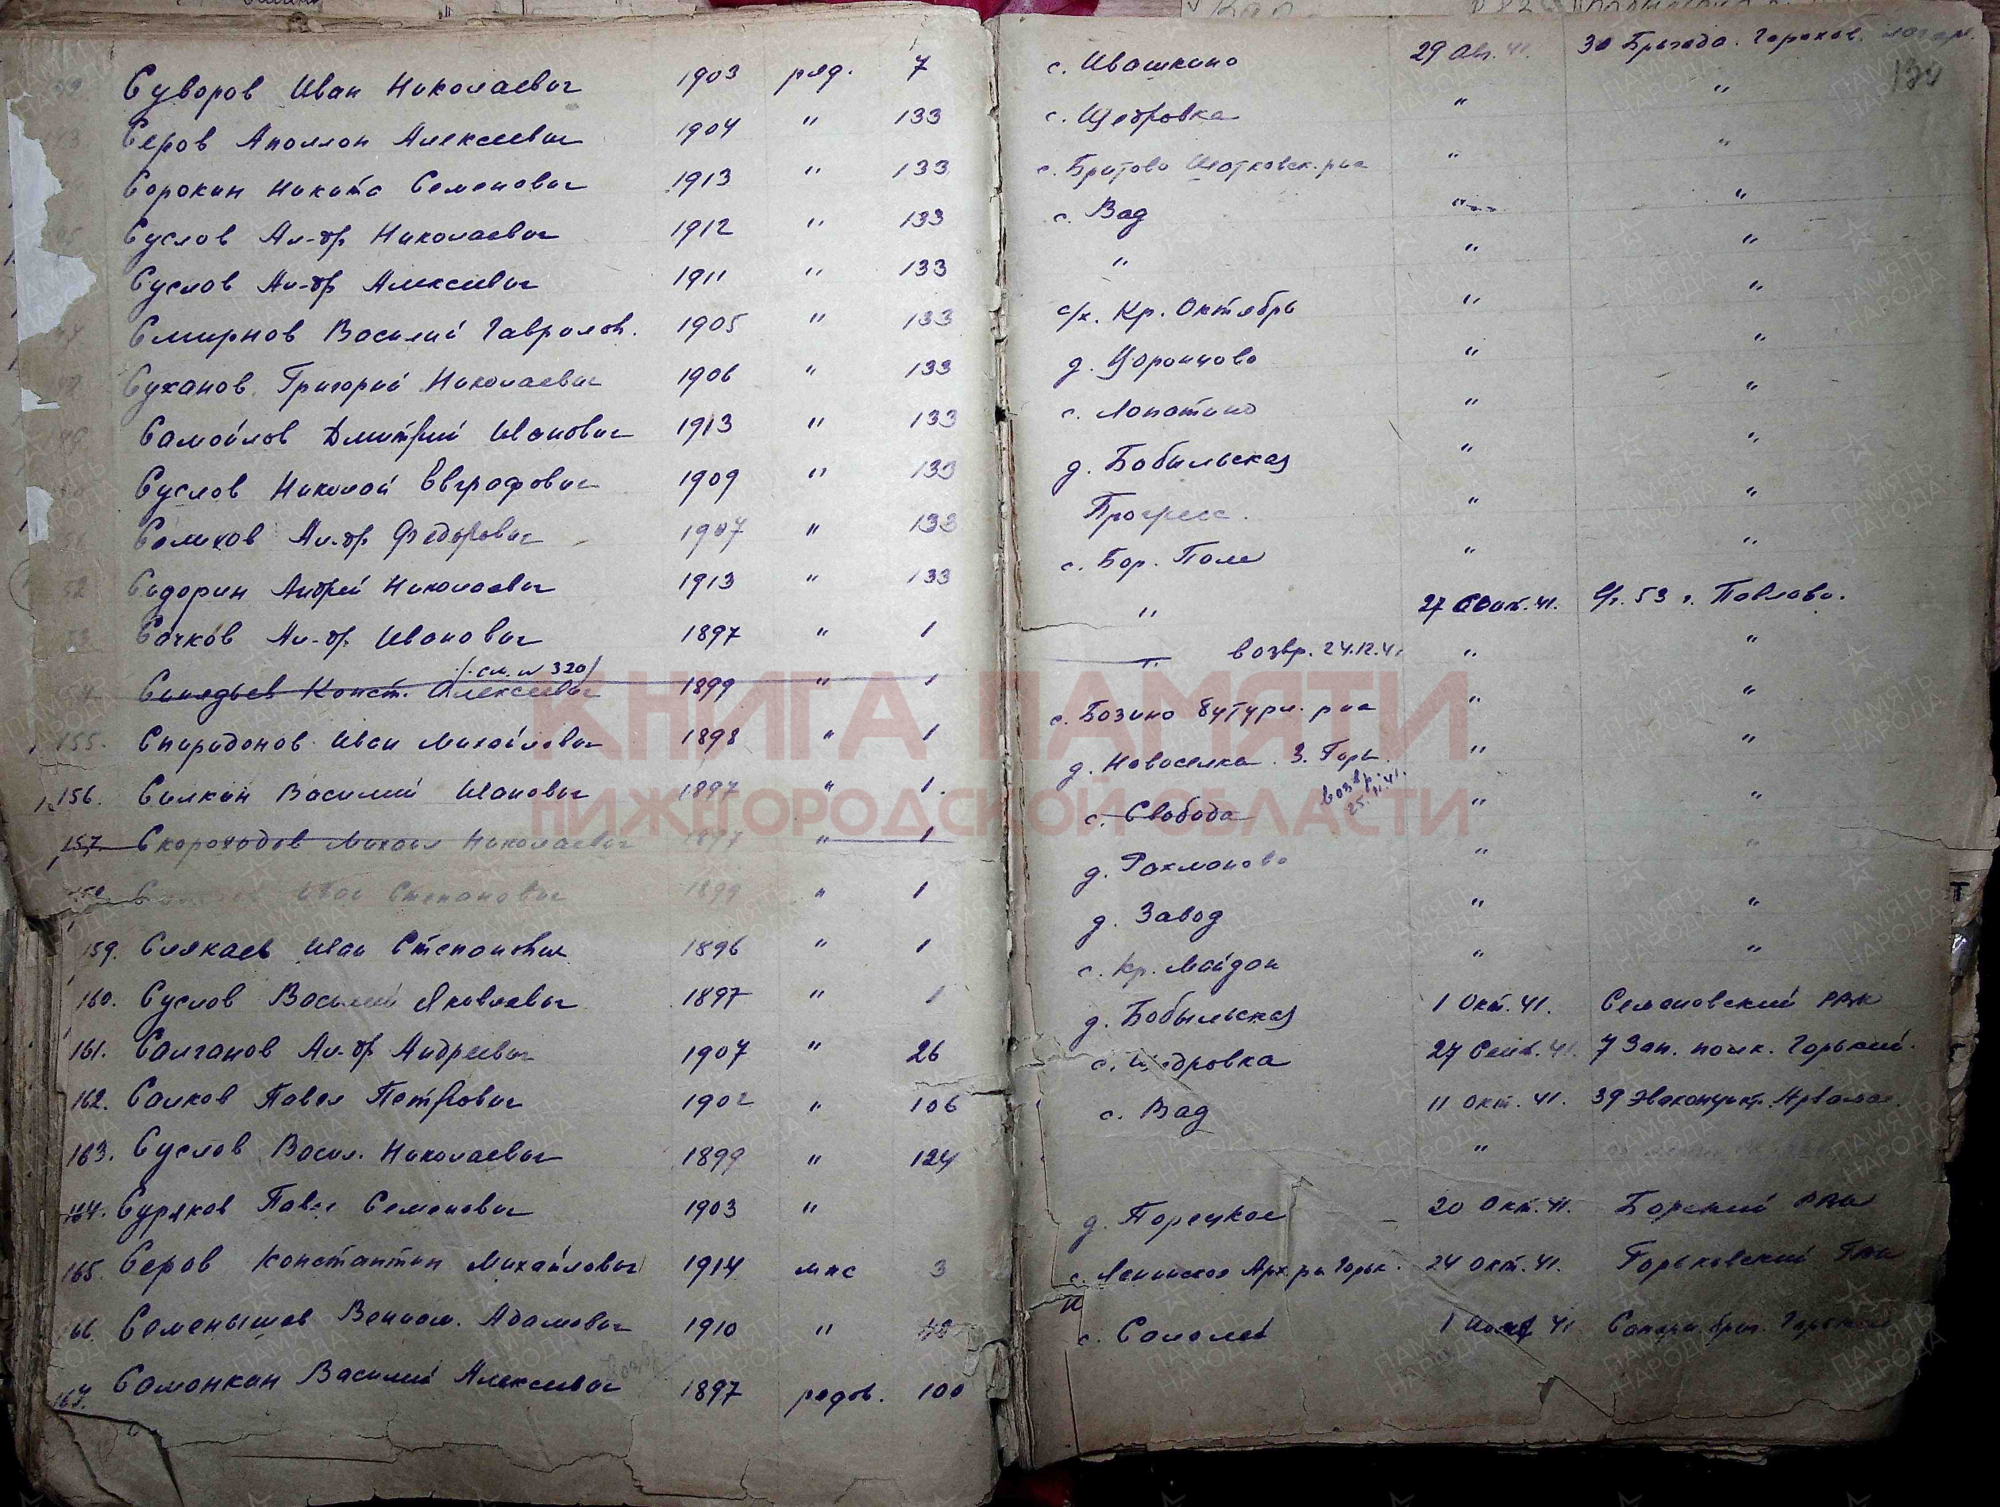 Суворов Иван Николаевич 1903 ряд. 7 с. Ивашкино 29 Авг. 41. 30 Бригада. Горьков.
Серов Аполлон Алексеевич 1904 " 133 с. Щедровка " "
Сорокин Никита Семенович 1913 " 133 с. " "
Суслов Ал-др Николаевич 1912 " 133 с. Вад " "
Суслов Ал-др Алексеевич 1911 " 133 " " "
Смирнов Василий Гаврилов. 1905 " 133 с/х. Кр. Октябрь " "
Суханов Григорий Николаевич 1906 " 133 д. " "
Самойлов Дмитрий Иванович 1913 " 133 с. Лопатино " "
Суслов Николай Евграфович 1909 " 133 д. Бобыльская " "
Ал-др Федорович 1907 " 133 Прогресс. " "
Сидорин Андрей Николаевич 1913 " 133 с. Бор. Поле " "
Сачков Ал-др Иванович 1897 " 1 " 27 41. 53 г. Павлово.
/см. № 320/
Конст. Алексеевич 1899 " 1 " возвр. 24.12.41 " "
155. Спиридонов Иван Михайлович 1898 " 1 с. Бутурл. р-на " "
156. Силкин Василий Иванович 1897 " 1. д. Новоселка " "
возвр. 25.11.41.
157. Скороходов Михаил Николаевич 1897 " 1 с. Свобода " "
Иван Степанович 1899 " 1 д. Рахманово " "
159. Иван Степанович 1896 " 1 д. Завод " "
160. Суслов Василий Яковлевич 1897 " 1 с. Кр. Майдан " "
161. Салганов Ал-др Андреевич 1907 " 26 д. Бобыльская 1 Окт. 41. Семеновский РВК
162. Салков Павел Петрович " 106 с. Щедровка 27 Сент. 41. 7 Зап. полк. Горький.
163. Суслов Васил. Николаевич 1899 " 124 с. Вад 11 Окт. 41. 39 Эвакопункт.
164. Суряков Павел Семенович 1903 " " "
165. Серов Константин Михайлович 1914 мнс 3 д. Порецкое 20 Окт. 41. Борский РВК
166. Адамович 1910 " с. Ленинское 24 Окт. 41. Горьковский ГВК
167. Самонкин Василий Алексеевич 1897 рядов. 100 с. Салалей 1 41
КНИГА ПАМЯТИ
НИЖЕГОРОДСКОЙ ОБЛАСТИ
ПАМЯТЬ НАРОДА